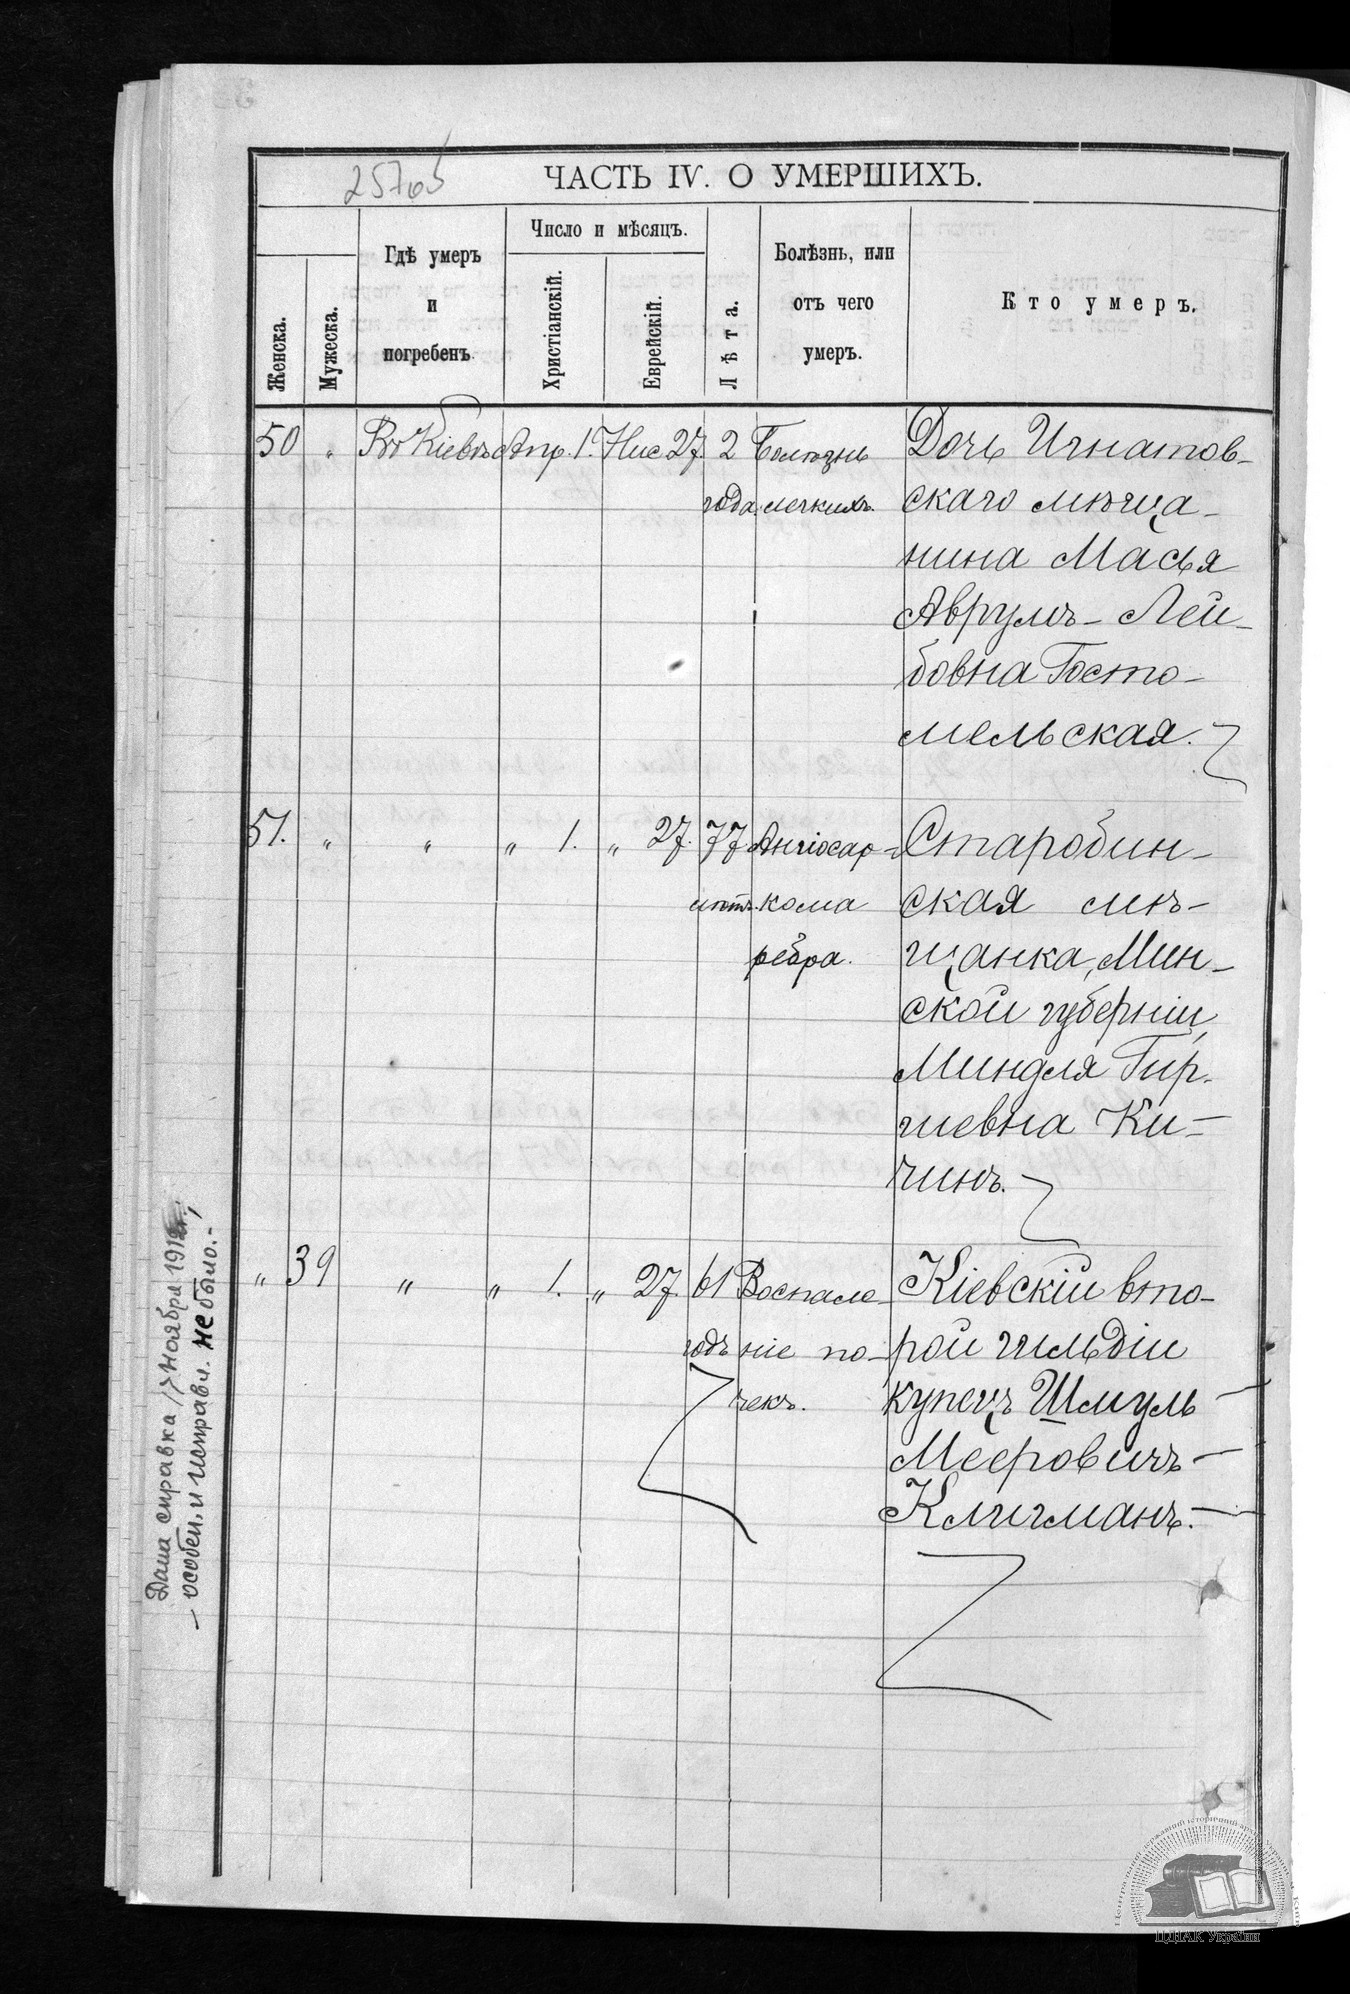 25705
ЧАСТЬ IV. О УМЕРШИХЪ.
Женска.
Мужеска.
Гдѣ умеръ
и
погребенъ
Число и мѣсяцъ.
Христіанскій.
Еврейскій.
Лѣта.
Болѣзнь, или
отъ чего
умеръ.
Кто умеръ.
50 „ Въ Кіевѣ Апр. 1. Нис 27. 2 Болѣзнь Дочь Игнатов-
года легкихъ. скаго мѣща-
нина Масья
Аврумъ-Лей-
бовна Госто-
мельская.
51. „ „ „ 1. „ 27. 77 Ангіосар- Старобин-
лѣтъ кома ская мѣ-
ребра. щанка, Мин-
ской губерніи,
Миндля Гир-
шевна Ки-
чинъ.
„ 39 „ „ 1. „ 27. 61 Воспале- Кіевскій вто-
годъ ніе по- рой гильдіи
чекъ. купецъ Шмуль
Мееровичъ
Клигманъ.
Дана справка 17 Ноября 1912г.,
— особен. и исправл. не было.-
ЦДІАК України